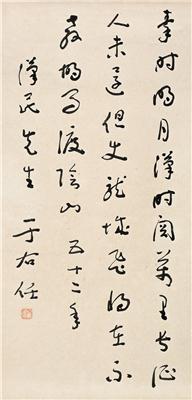 秦時明月漢時關萬里長征
人未還但使龍城飛將在不
教胡馬渡陰山 五十二年
漢民先生 于右任